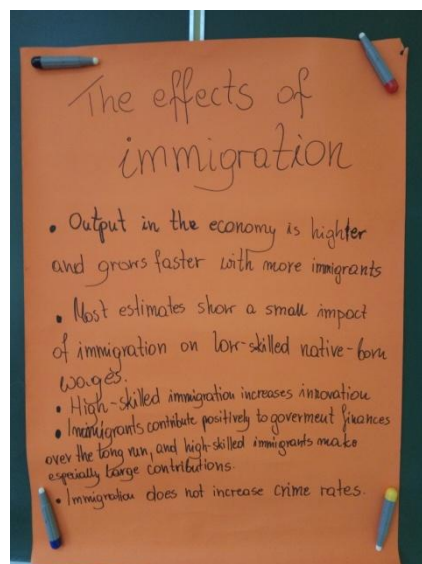 The effects of
immigration
• Output in the economy is highter
and grows faster with more immigrants
• Most estimates show a small impact
of immigration on low-skilled native-born
wages.
• High-skilled immigration increases innovation
• Immigrants contribute positively to goverment finances
over the long run, and high-skilled immigrants make
especially large contributions.
• Immigration does not increase crime rates.